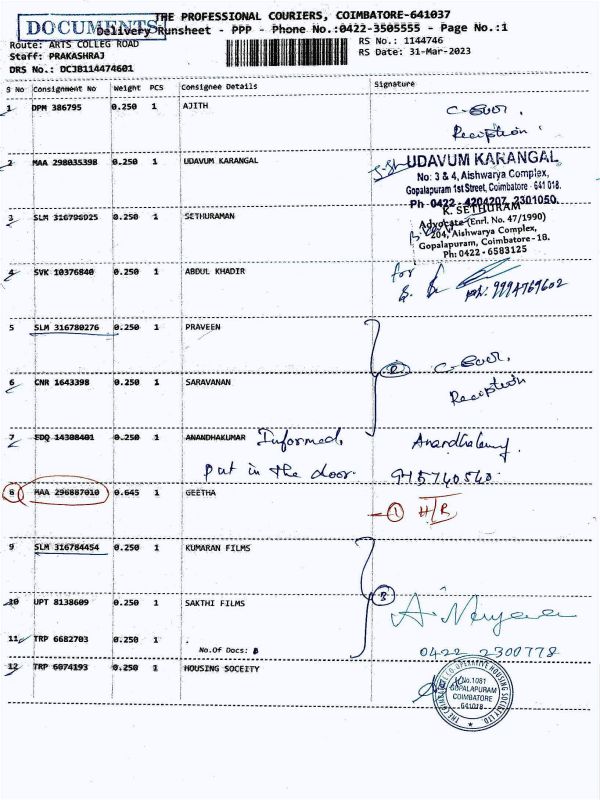 DOCUMENTS
THE PROFESSIONAL COURIERS, COIMBATORE-641037
Delivery Runsheet - PPP - Phone No.:0422-3505555 - Page No.:1
Route: ARTS COLLEG ROAD
RS No.: 1144746
Staff: PRAKASHRAJ
RS Date: 31-Mar-2023
DRS No.: DCJB114474601
S No Consignment No Weight PCS Consignee Details Signature
1 DPM 386795 0.250 1 AJITH
Reception
2 MAA 298035398 0.250 1 UDAVUM KARANGAL
UDAVUM KARANGAL
No: 3 & 4, Aishwarya Complex,
Gopalapuram 1st Street, Coimbatore - 641 018.
Ph 0422 - 4204207, 2301050.
3 SLM 316796925 0.250 1 SETHURAMAN
K. SETHURAM
Advocate (Enrl. No. 47/1990)
204, Aishwarya Complex,
Gopalapuram, Coimbatore - 18.
Ph: 0422 - 6583125
4 SVK 10376840 0.250 1 ABDUL KHADIR
for
ph: 9994769602
5 SLM 316780276 0.250 1 PRAVEEN
Reception
6 CNR 1643398 0.250 1 SARAVANAN
7 EDQ 14308401 0.250 1 ANANDHAKUMAR Informed,
put in the door.
915740540
8 MAA 296887010 0.645 1 GEETHA
1 H/R
9 SLM 316784454 0.250 1 KUMARAN FILMS
3
10 UPT 8138609 0.250 1 SAKTHI FILMS
11 TRP 6682703 0.250 1 .
No.Of Docs:
0422 2300778
12 TRP 6074193 0.250 1 HOUSING SOCEITY
No.1081
GOPALAPURAM
COIMBATORE
641018